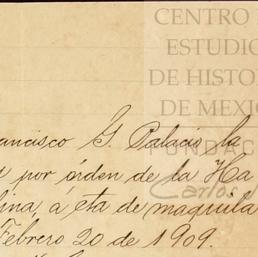 CENTRO
ESTUDIO
DE HISTOR
DE MEXIC
FUNDAC
Carlos
rancisco G. Palacio, la
por órden de la Ha
ina, á éta de maquila
Febrero 20 de 1909.